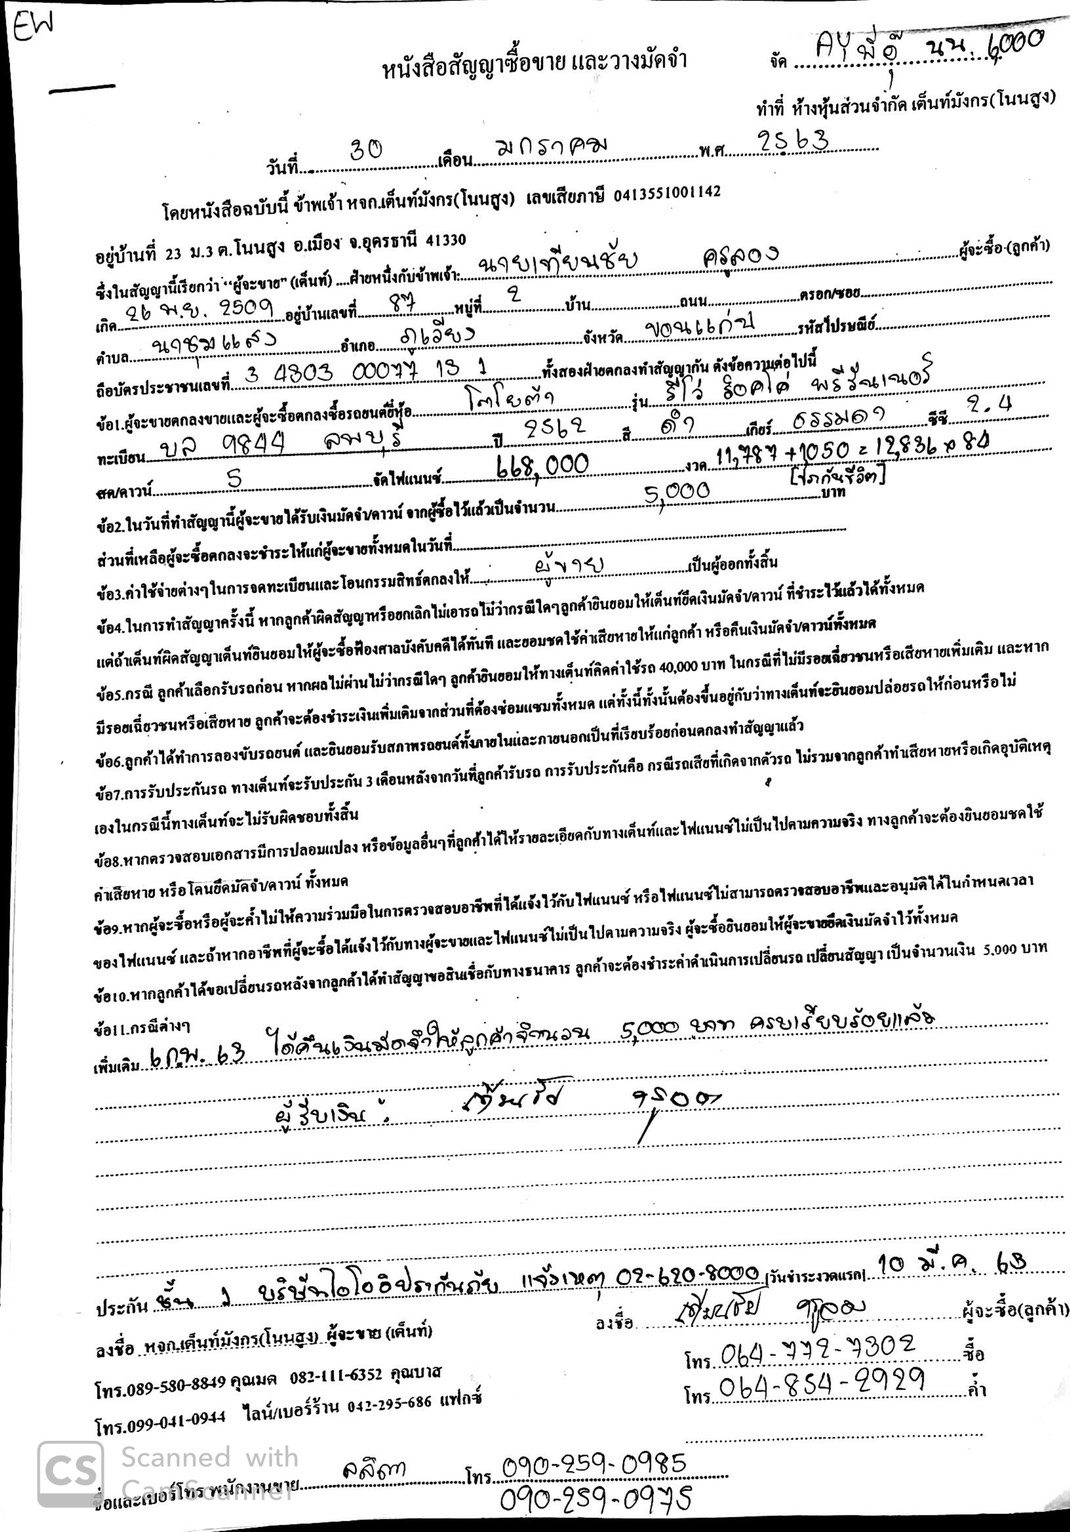 EW
หนังสือสัญญาซื้อขาย และวางมัดจำ
จัด AY พี่อุ๊ นน. 6,000
ทำที่ ห้างหุ้นส่วนจำกัด เต็นท์มังกร(โนนสูง)
วันที่ 30 เดือน มกราคม พ.ศ. 2563
โดยหนังสือฉบับนี้ ข้าพเจ้า หจก.เต็นท์มังกร(โนนสูง) เลขเสียภาษี 0413551001142
อยู่บ้านที่ 23 ม.3 ต.โนนสูง อ.เมือง จ.อุดรธานี 41330
ซึ่งในสัญญานี้เรียกว่า "ผู้จะขาย" (เต็นท์) ....ฝ่ายหนึ่งกับข้าพเจ้า: นายเทียนชัย ครูลอง ผู้จะซื้อ (ลูกค้า)
เกิด 26 พ.ย. 2509 อยู่บ้านเลขที่ 87 หมู่ที่ 2 บ้าน ถนน ตรอก/ซอย
ตำบล นาชุมแสง อำเภอ ภูเวียง จังหวัด ขอนแก่น รหัสไปรษณีย์
ถือบัตรประชาชนเลขที่ 3 4803 00077 13 1 ทั้งสองฝ่ายตกลงทำสัญญากัน ดังข้อความต่อไปนี้
ข้อ1.ผู้จะขายตกลงขายและผู้จะซื้อตกลงซื้อรถยนต์ยี่ห้อ โตโยต้า รุ่น รีโว่ ร็อคโค่ พรีรันเนอร์
ทะเบียน บล 9844 ลพบุรี ปี 2562 สี ดำ เกียร์ ธรรมดา ซีซี 2.4
สด/ดาวน์ 5 จัดไฟแนนซ์ 668,000 งวด 11,787 + 1050 = 12,836 x 84
[ประกันชีวิต]
ข้อ2.ในวันที่ทำสัญญานี้ผู้จะขายได้รับเงินมัดจำ/ดาวน์ จากผู้ซื้อไว้แล้วเป็นจำนวน 5,000 บาท
ส่วนที่เหลือผู้จะซื้อตกลงจะชำระให้แก่ผู้จะขายทั้งหมดในวันที่
ข้อ3.ค่าใช้จ่ายต่างๆในการจดทะเบียนและโอนกรรมสิทธ์ตกลงให้ ผู้ขาย เป็นผู้ออกทั้งสิ้น
ข้อ4.ในการทำสัญญาครั้งนี้ หากลูกค้าผิดสัญญาหรือยกเลิกไม่เอารถไม่ว่ากรณีใดๆลูกค้ายินยอมให้เต็นท์ยึดเงินมัดจำ/ดาวน์ ที่ชำระไว้แล้วได้ทั้งหมด
แต่ถ้าเต็นท์ผิดสัญญาเต็นท์ยินยอมให้ผู้จะซื้อฟ้องศาลบังคับคดีได้ทันที และยอมชดใช้ค่าเสียหายให้แก่ลูกค้า หรือคืนเงินมัดจำ/ดาวน์ทั้งหมด
ข้อ5.กรณี ลูกค้าเลือกรับรถก่อน หากผลไม่ผ่านไม่ว่ากรณีใดๆ ลูกค้ายินยอมให้ทางเต็นท์คิดค่าใช้รถ 40,000 บาท ในกรณีที่ไม่มีรอยเฉี่ยวชนหรือเสียหายเพิ่มเติม และหาก
มีรอยเฉี่ยวชนหรือเสียหาย ลูกค้าจะต้องชำระเงินเพิ่มเติมจากส่วนที่ต้องซ่อมแซมทั้งหมด แต่ทั้งนี้ทั้งนั้นต้องขึ้นอยู่กับว่าทางเต็นท์จะยินยอมปล่อยรถให้ก่อนหรือไม่
ข้อ6.ลูกค้าได้ทำการลองขับรถยนต์ และยินยอมรับสภาพรถยนต์ทั้งภายในและภายนอกเป็นที่เรียบร้อยก่อนตกลงทำสัญญาแล้ว
ข้อ7.การรับประกันรถ ทางเต็นท์จะรับประกัน 3 เดือนหลังจากวันที่ลูกค้ารับรถ การรับประกันคือ กรณีรถเสียที่เกิดจากตัวรถ ไม่รวมจากลูกค้าทำเสียหายหรือเกิดอุบัติเหตุ
เองในกรณีนี้ทางเต็นท์จะไม่รับผิดชอบทั้งสิ้น
ข้อ8.หากตรวจสอบเอกสารมีการปลอมแปลง หรือข้อมูลอื่นๆที่ลูกค้าได้ให้รายละเอียดกับทางเต็นท์และไฟแนนซ์ไม่เป็นไปตามความจริง ทางลูกค้าจะต้องยินยอมชดใช้
ค่าเสียหาย หรือโดนยึดมัดจำ/ดาวน์ ทั้งหมด
ข้อ9.หากผู้จะซื้อหรือผู้จะค้ำไม่ให้ความร่วมมือในการตรวจสอบอาชีพที่ได้แจ้งไว้กับไฟแนนซ์ หรือไฟแนนซ์ไม่สามารถตรวจสอบอาชีพและอนุมัติได้ในกำหนดเวลา
ของไฟแนนซ์ และถ้าหากอาชีพที่ผู้จะซื้อได้แจ้งไว้กับทางผู้จะขายและไฟแนนซ์ไม่เป็นไปตามความจริง ผู้จะซื้อยินยอมให้ผู้จะขายยึดเงินมัดจำไว้ทั้งหมด
ข้อ10.หากลูกค้าได้ขอเปลี่ยนรถหลังจากลูกค้าได้ทำสัญญาขอสินเชื่อกับทางธนาคาร ลูกค้าจะต้องชำระค่าดำเนินการเปลี่ยนรถ เปลี่ยนสัญญา เป็นจำนวนเงิน 5,000 บาท
ข้อ11.กรณีต่างๆ
เพิ่มเติม 6 ก.พ. 63 ได้คืนเงินมัดจำให้ลูกค้าจำนวน 5,000 บาท ครบเรียบร้อยแล้ว
ผู้รับเงิน : เทียนชัย ครูลอง
ประกัน ชั้น 1 บริษัทไอโออิประกันภัย แจ้งเหตุ 02-620-8000 [วันชำระงวดแรก] 10 มี.ค. 63
ลงชื่อ หจก.เต็นท์มังกร(โนนสูง) ผู้จะขาย (เต็นท์)
ลงชื่อ เทียนชัย ครูลอง ผู้จะซื้อ(ลูกค้า)
โทร 064-772-7302 ซื้อ
โทร.089-580-8849 คุณมด 082-111-6352 คุณบาส
โทร 064-854-2929 ค้ำ
โทร.099-041-0944 ไลน์/เบอร์ร้าน 042-295-686 แฟกซ์
CS Scanned with
CamScanner
ชื่อและเบอร์โทร พนักงานขาย ลลิตา โทร 090-259-0985
090-259-0975